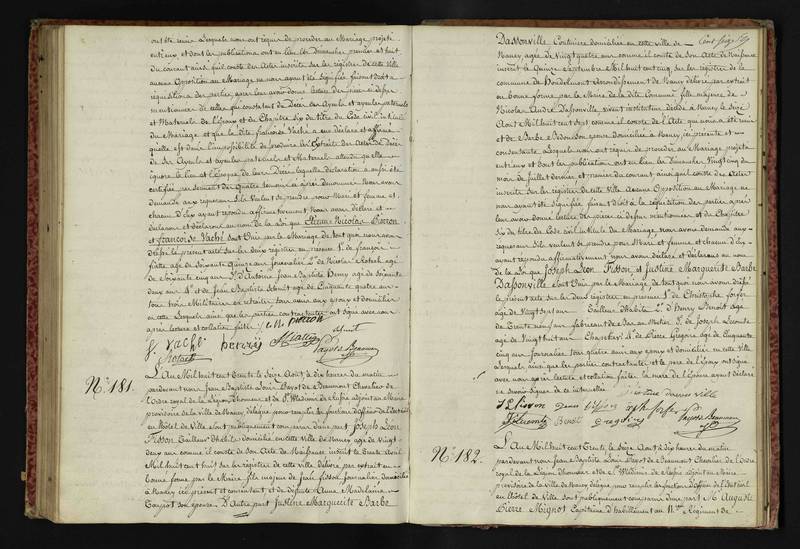 ont été remis Lesquels nous ont requis de procéder au Mariage projeté
entr'eux, et dont les publications ont eu lieu les Dimanches premier et huit
du courant ainsi qu'il conste des Actes inscrits sur les registres de cette ville
aucune Opposition au Mariage ne nous ayant été signifiée, faisant droit à
réquisition des parties, après leur avoir donné lecture des pièces ci-dessus
mentionnées de celles qui constatent les Décès des Ayeuls et ayeules paternels
et Maternels de l'époux et du Chapitre six du titre du Code civil intitulé
du Mariage et que la dite françoise Vaché a en déclaré et affirmé
qu'elle est dans l'impossibilité de produire les Extraits des Actes de décès
de ses Ayeuls et ayeules paternels et Maternels attendu qu'elle
ignore le lieu et l'époque de leur Décès laquelle déclaration a aussi été
certifiée par serment des quatre témoins ci après dénommés Nous avons
demandé aux requérans s'ils veulent se prendre pour Mari et femme et
chacun d'eux ayant répondu affirmativement Nous avons déclaré et
déclarons au nom de la Loi que Etienne Nicolas Pierron
et françoise Vaché sont Unis par le Mariage De tout quoi nous avons
dressé le présent acte sur les deux registres en présence 1° de françois
fiatte agé de Soixante Quinze ans journalier 2° de Nicolas Notach agé
de Soixante cinq ans 3° d'Antoine Jean Baptiste Henry agé de Soixante
deux ans 4° et de Jean Baptiste agé de Cinquante quatre ans
tous trois Militaires en retraite tous amis aux époux et domiciliés
en cette ville Lesquels ainsi que les parties contractantes ont signé avec nous
après lecture et collation faites
f. Vaché henry fiatte
Payot de Beaumont
N° 181.
L'An Mil huit cent Trente Le Seize Août à Dix heures du matin
pardevant nous Jean Baptiste Louis Payot de Beaumont Chevalier de
l'Ordre royal de la Légion d'honneur et de St Wladimir de Russie adjoint au Maire
provisoire de la ville de Nancy délégué pour remplir les fonctions d'officier de l'Etat civil
en l'hôtel de Ville sont publiquement comparus d'une part Joseph Léon
Fisson Tailleur d'habits domicilié en cette Ville de Nancy agé de Vingt
deux ans comme il conste de son Acte de Naissance inscrit le trente Avril
Mil huit cent huit sur les registres de cette ville délivré par extrait en
bonne forme par le Maire, fils majeur de Jean fisson journalier domicilié
à Nancy ici présent et consentant, et de défunte Anne Madelaine
son épouse D'Autre part Justine Marguerite Barbe
Dassonville Couturière domiciliée en cette ville de
Nancy agée de Vingt quatre ans comme il conste de son Acte de Naissance
inscrit le Quinze Septembre Mil huit cent six sur les registres de la
commune de Houdelmont arrondissement de Nancy délivré par extrait
en bonne forme par le Maire de la dite Commune fille majeure de
Nicolas André Dassonville vivant instituteur décédé à Nancy le Seize
Août Mil huit cent sept comme il conste de l'Acte qui nous a été remis
et de Barbe Bedousson domiciliée à Nancy, ici présente et
consentante Lesquels nous ont requis de procéder au Mariage projeté
entr'eux et dont les publications ont eu lieu les Dimanches Vingt cinq du
mois de Juillet dernier et premier du courant ainsi qu'il conste des Actes
inscrits sur les registres de cette Ville Aucune Opposition au Mariage ne
nous ayant été signifiée faisant droit à la réquisition des parties après
leur avoir donné lecture des pièces ci dessus mentionnées et du Chapitre
six du titre du Code civil intitulé du Mariage nous avons demandé aux
requérans s'ils veulent se prendre pour Mari et femme et chacun d'eux
ayant répondu affirmativement nous avons déclaré et déclarons au nom
de la Loi que Joseph Léon Fisson et Justine Marguerite Barbe
Dassonville sont Unis par le Mariage de tout quoi nous avons dressé
le présent acte sur les deux registres en présence 1° de Christophe forfer
agé de Vingt sept ans Tailleur d'habits 2° d'Henry Benoit agé
de Trente neuf ans fabricant de Bas au Métier 3° de Joseph Lecomte
agé de Vingt huit ans 4° de Pierre Grégoire agé de Cinquante
cinq ans journalier tous quatre amis aux époux et domiciliés en cette ville
Lesquels ainsi que les parties contractantes et le père de l'époux ont signé
avec nous après lecture et collation faites la mère de l'Epouse ayant déclaré
ne savoir signer de ce interpellée
Fisson Jean fisson
J Lecomte Benoit Gregoire Payot de Beaumont
N° 182.
L'An Mil huit cent Trente, Le Seize Août à dix heures du matin
pardevant nous Jean Baptiste Louis Payot de Beaumont Chevalier de l'Ordre
royal de la Légion d'honneur et de St Wladimir de Russie adjoint au Maire
provisoire de la ville de Nancy délégué pour remplir les fonctions d'officier de l'Etat civil
en l'hôtel de Ville sont publiquement comparus d'une part Mr Auguste
Pierre Mignot Capitaine d'habillement au 11.me Régiment de